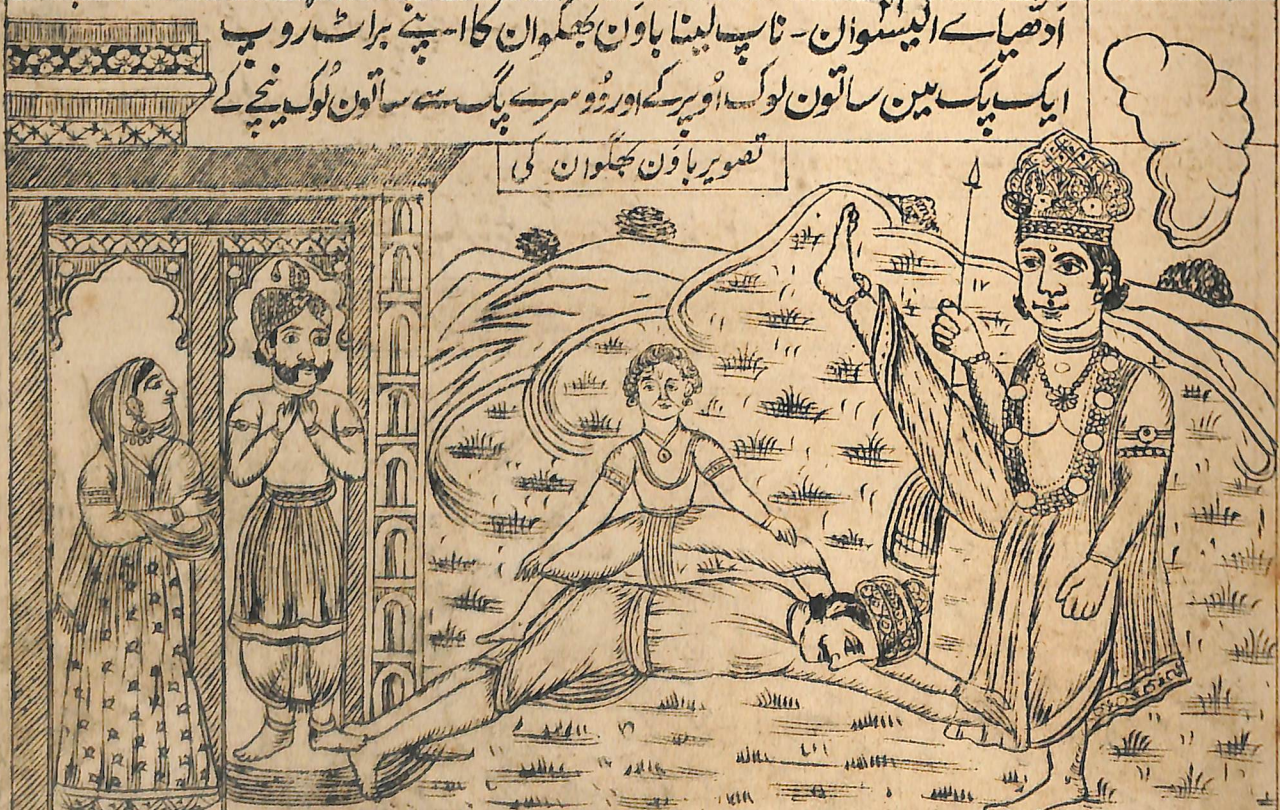 ادھیاے اکیسواں - ناپ لینا باون بھگوان کا اپنے براٹ روپ
ایک پگ مین ساتون لوک اوپر کے اور دوسرے پگ سے ساتون لوک نیچے کے
تصویر باون بھگوان کی